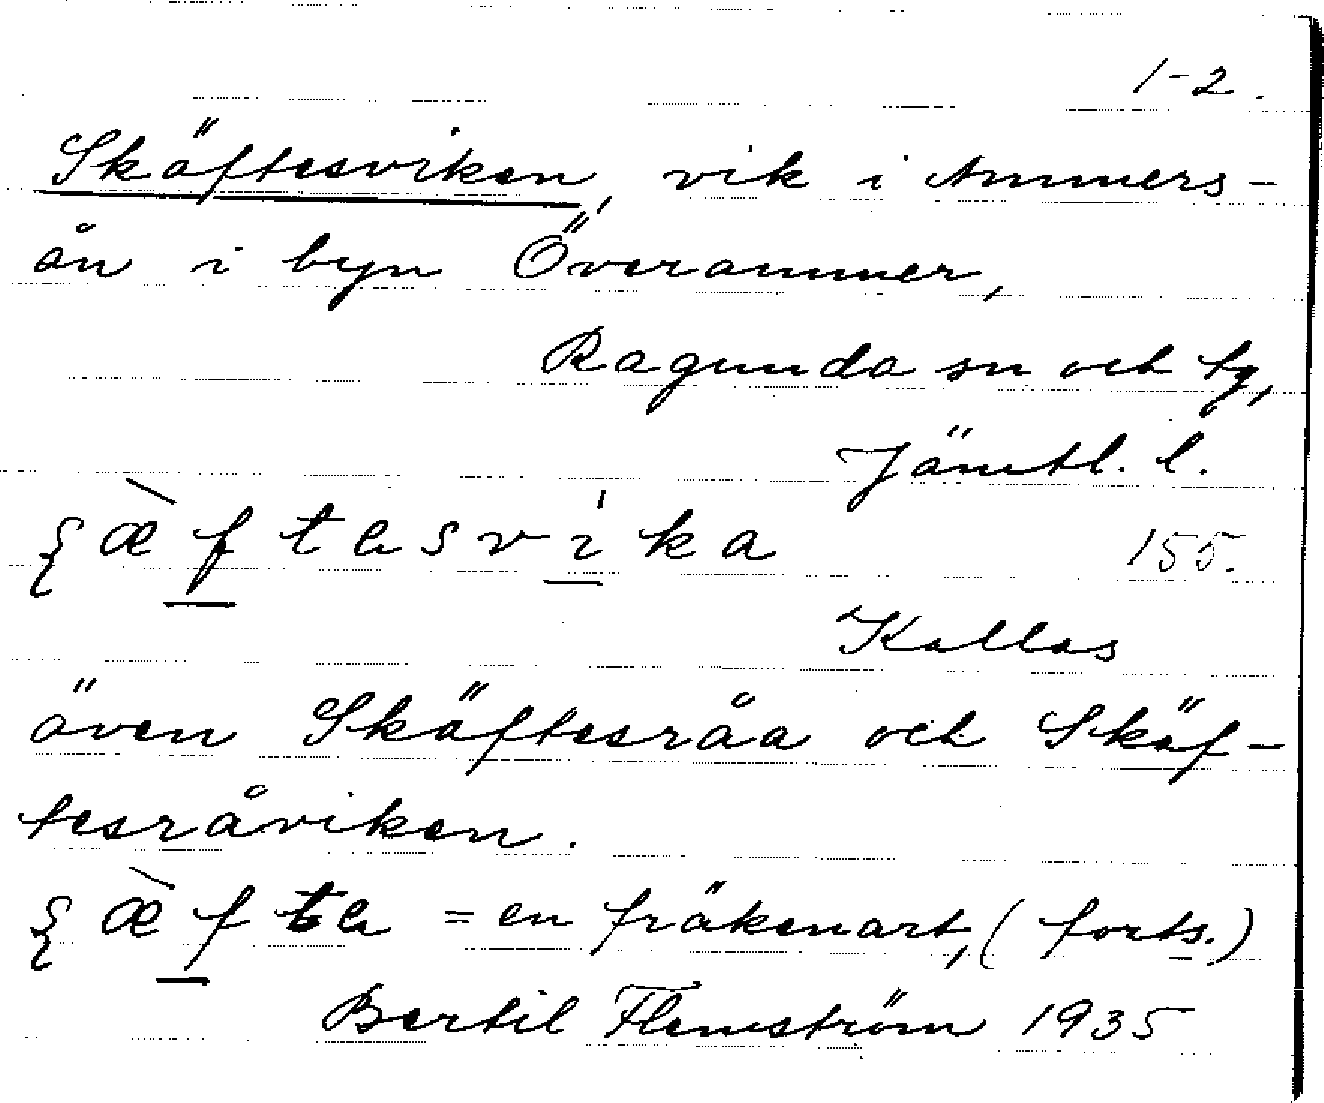 1-2.
Skäftesviken, vik i Ammers-
ån i byn Överammer,
Ragunda sn och tg,
Jämtl. l.
ξæ̀ftesvika 155.
Kallas
även Skäftesråa och Skäf-
tesråviken.
ξæ̀fte = en fräkenart, (forts.)
Bertil Flemström 1935